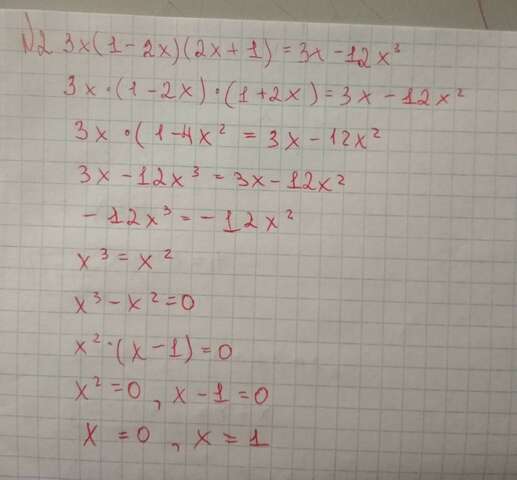 №2 3x(1-2x)(2x+1)=3x-12x³
3x·(1-2x)·(1+2x)=3x-12x²
3x·(1-4x²=3x-12x²
3x-12x³=3x-12x²
-12x³=-12x²
x³=x²
x³-x²=0
x²·(x-1)=0
x²=0, x-1=0
x=0, x=1